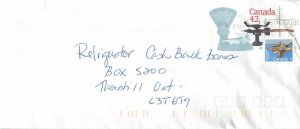 Canada
42
Reliquator Cash Back Bonus
Box 5200
Thornhill Ont.
L3T 6T9